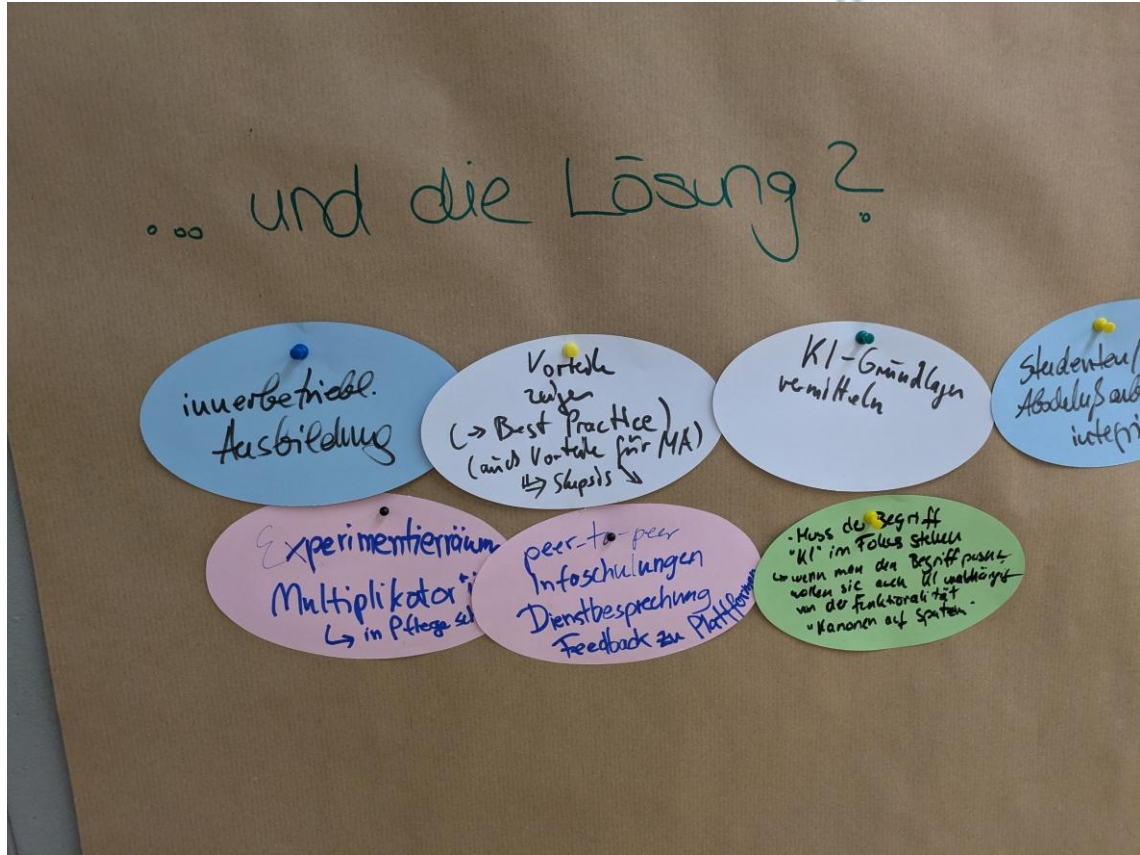 ... und die Lösung?
innerbetriebl.
Ausbildung
Vorteile
zeigen
(→ Best Practice)
(auch Vorteile für MA)
⇒ Skepsis ↘
KI-Grundlagen
vermitteln
Studenten/
Abschluß
integri
Experimentierräum
Multiplikator*i
↳ in Pflege
peer-to-peer
Infoschulungen
Dienstbesprechung
Feedback zu Plattformen
- Muss der Begriff
"KI" im Fokus stehen
↳ wenn man den Begriff
wollen sie auch KI unabhängig
von der Funktionalität
"Kanonen auf Spatzen"